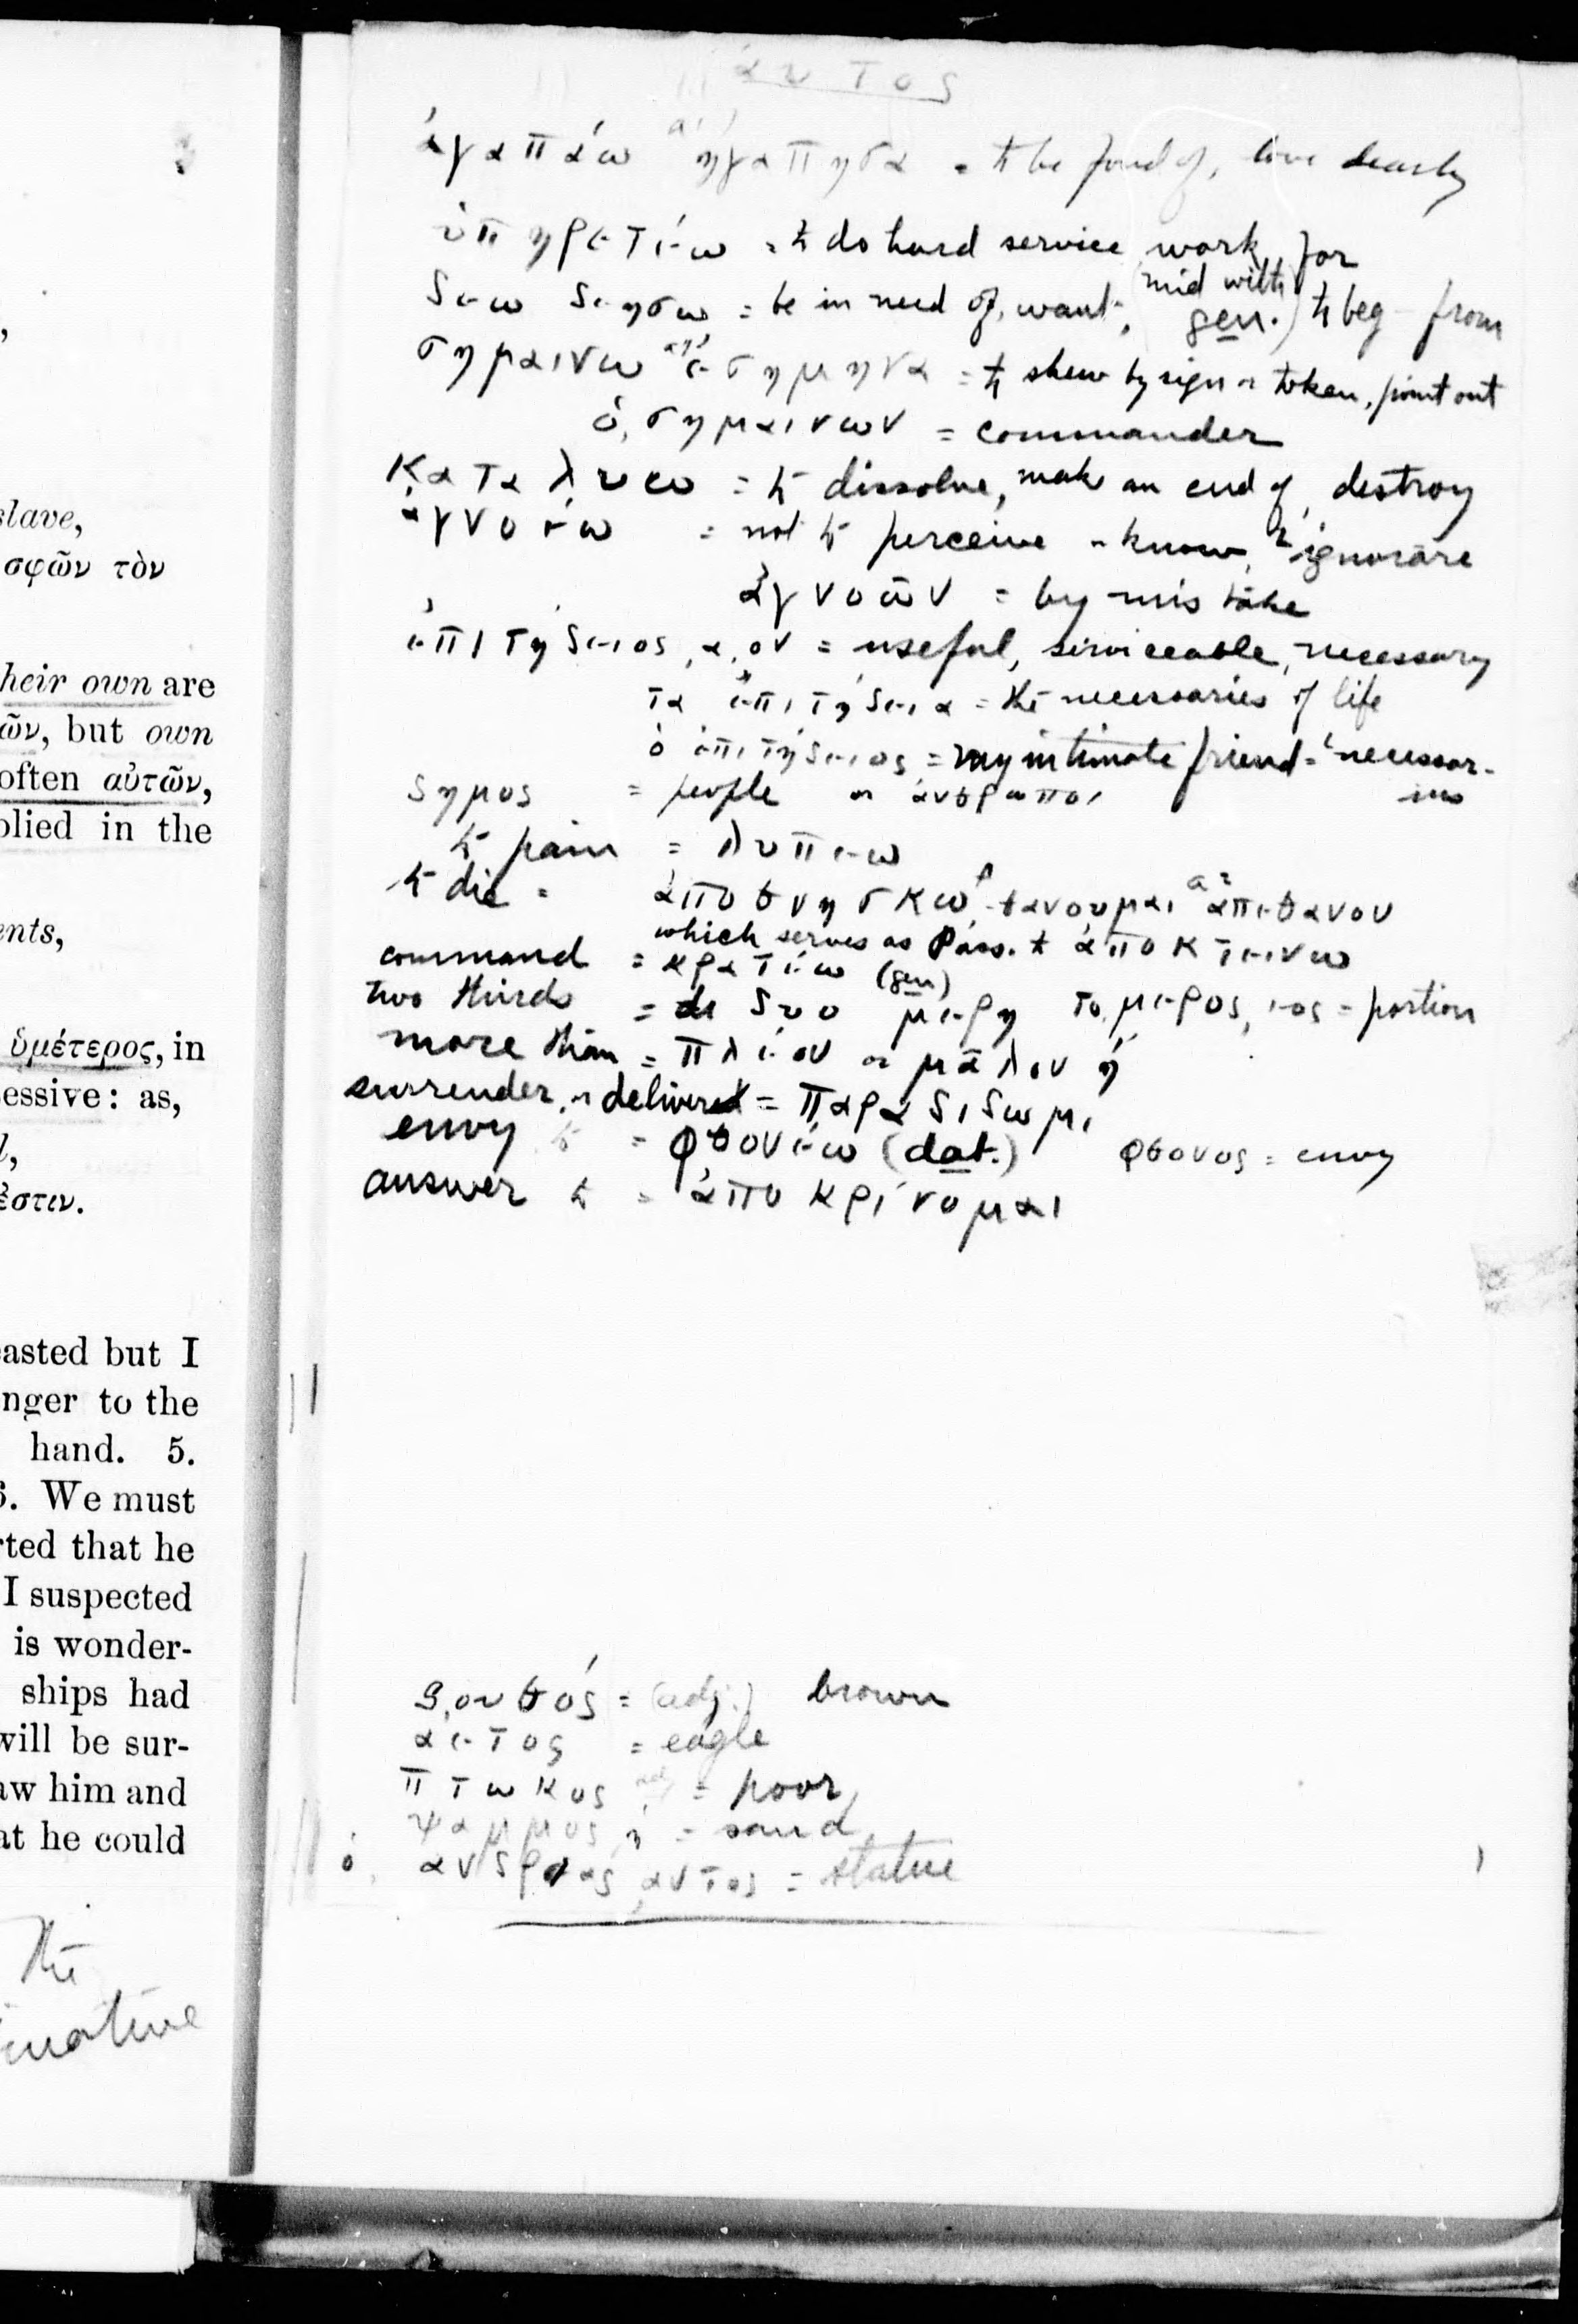 slave,
σφῶν τὸν
heir own are
ῶν, but own
often αὑτῶν,
plied in the
ents,
ὑμέτερος, in
essive: as,
l,
ἔστιν.
easted but I
nger to the
hand. 5.
6. We must
rted that he
I suspected
is wonder-
ships had
will be sur-
aw him and
at he could
The
αυτος
ἀγαπάω ἠγαπησα = to be fond of, love dearly
ὑπηρετέω = to do hard service, work, for
δεω δεησω = be in need of, want, (mid with gen.) to beg from
σημαινω ἐσημηνα = to shew by sign or token, point out
ὁ σημαινων = commander
καταλυω = to dissolve, make an end of, destroy
ἀγνοέω = not to perceive or know, L ignorare
ἀγνοῶν = by mistake
ἐπιτήδειος, α, ον = useful, serviceable, necessary
τα ἐπιτήδεια = the necessaries of life
ὁ ἐπιτήδειος = my intimate friend = L necessar-
ius
δημος = people or ἀνθρωποι
to pain = λυπεω
to die = ἀποθνησκω f -θανουμαι a2 ἀπεθανον
which serves as Pass. to ἀποκτεινω
command = κρατέω (gen)
two thirds = δυο μερη το μερος, εος = portion
more than = πλέον or μᾶλλον ἤ
surrender, or deliver = παραδιδωμι
envy to = φθονέω (dat.) φθονος = envy
answer to = ἀποκρίνομαι
ξουθός = (adj.) brown
αετος = eagle
πτωκος adj = poor
ψαμμος, ἡ = sand
ὁ, ανδριας, αντος = statue